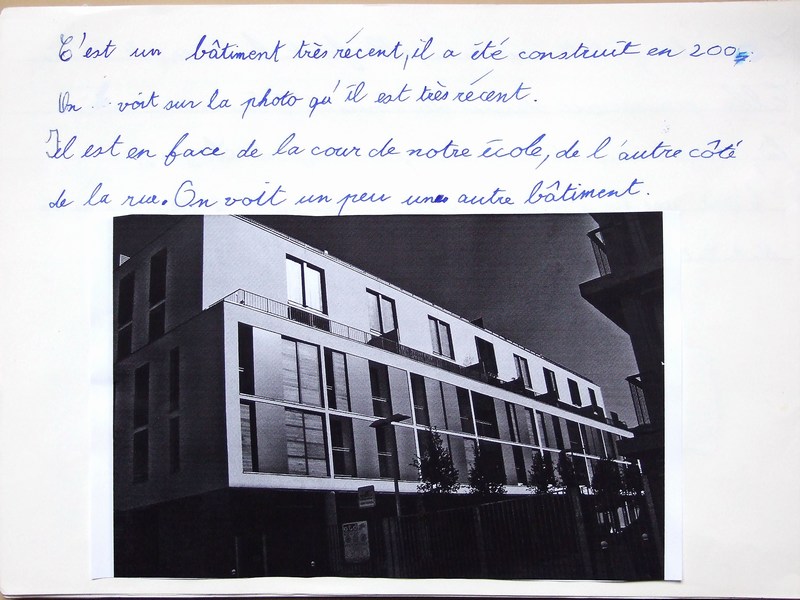 C'est un bâtiment très récent, il a été construit en
On voit sur la photo qu'il est très récent.
Il est en face de la cour de notre école, de l'autre côté
de la rue. On voit un peu un autre bâtiment.